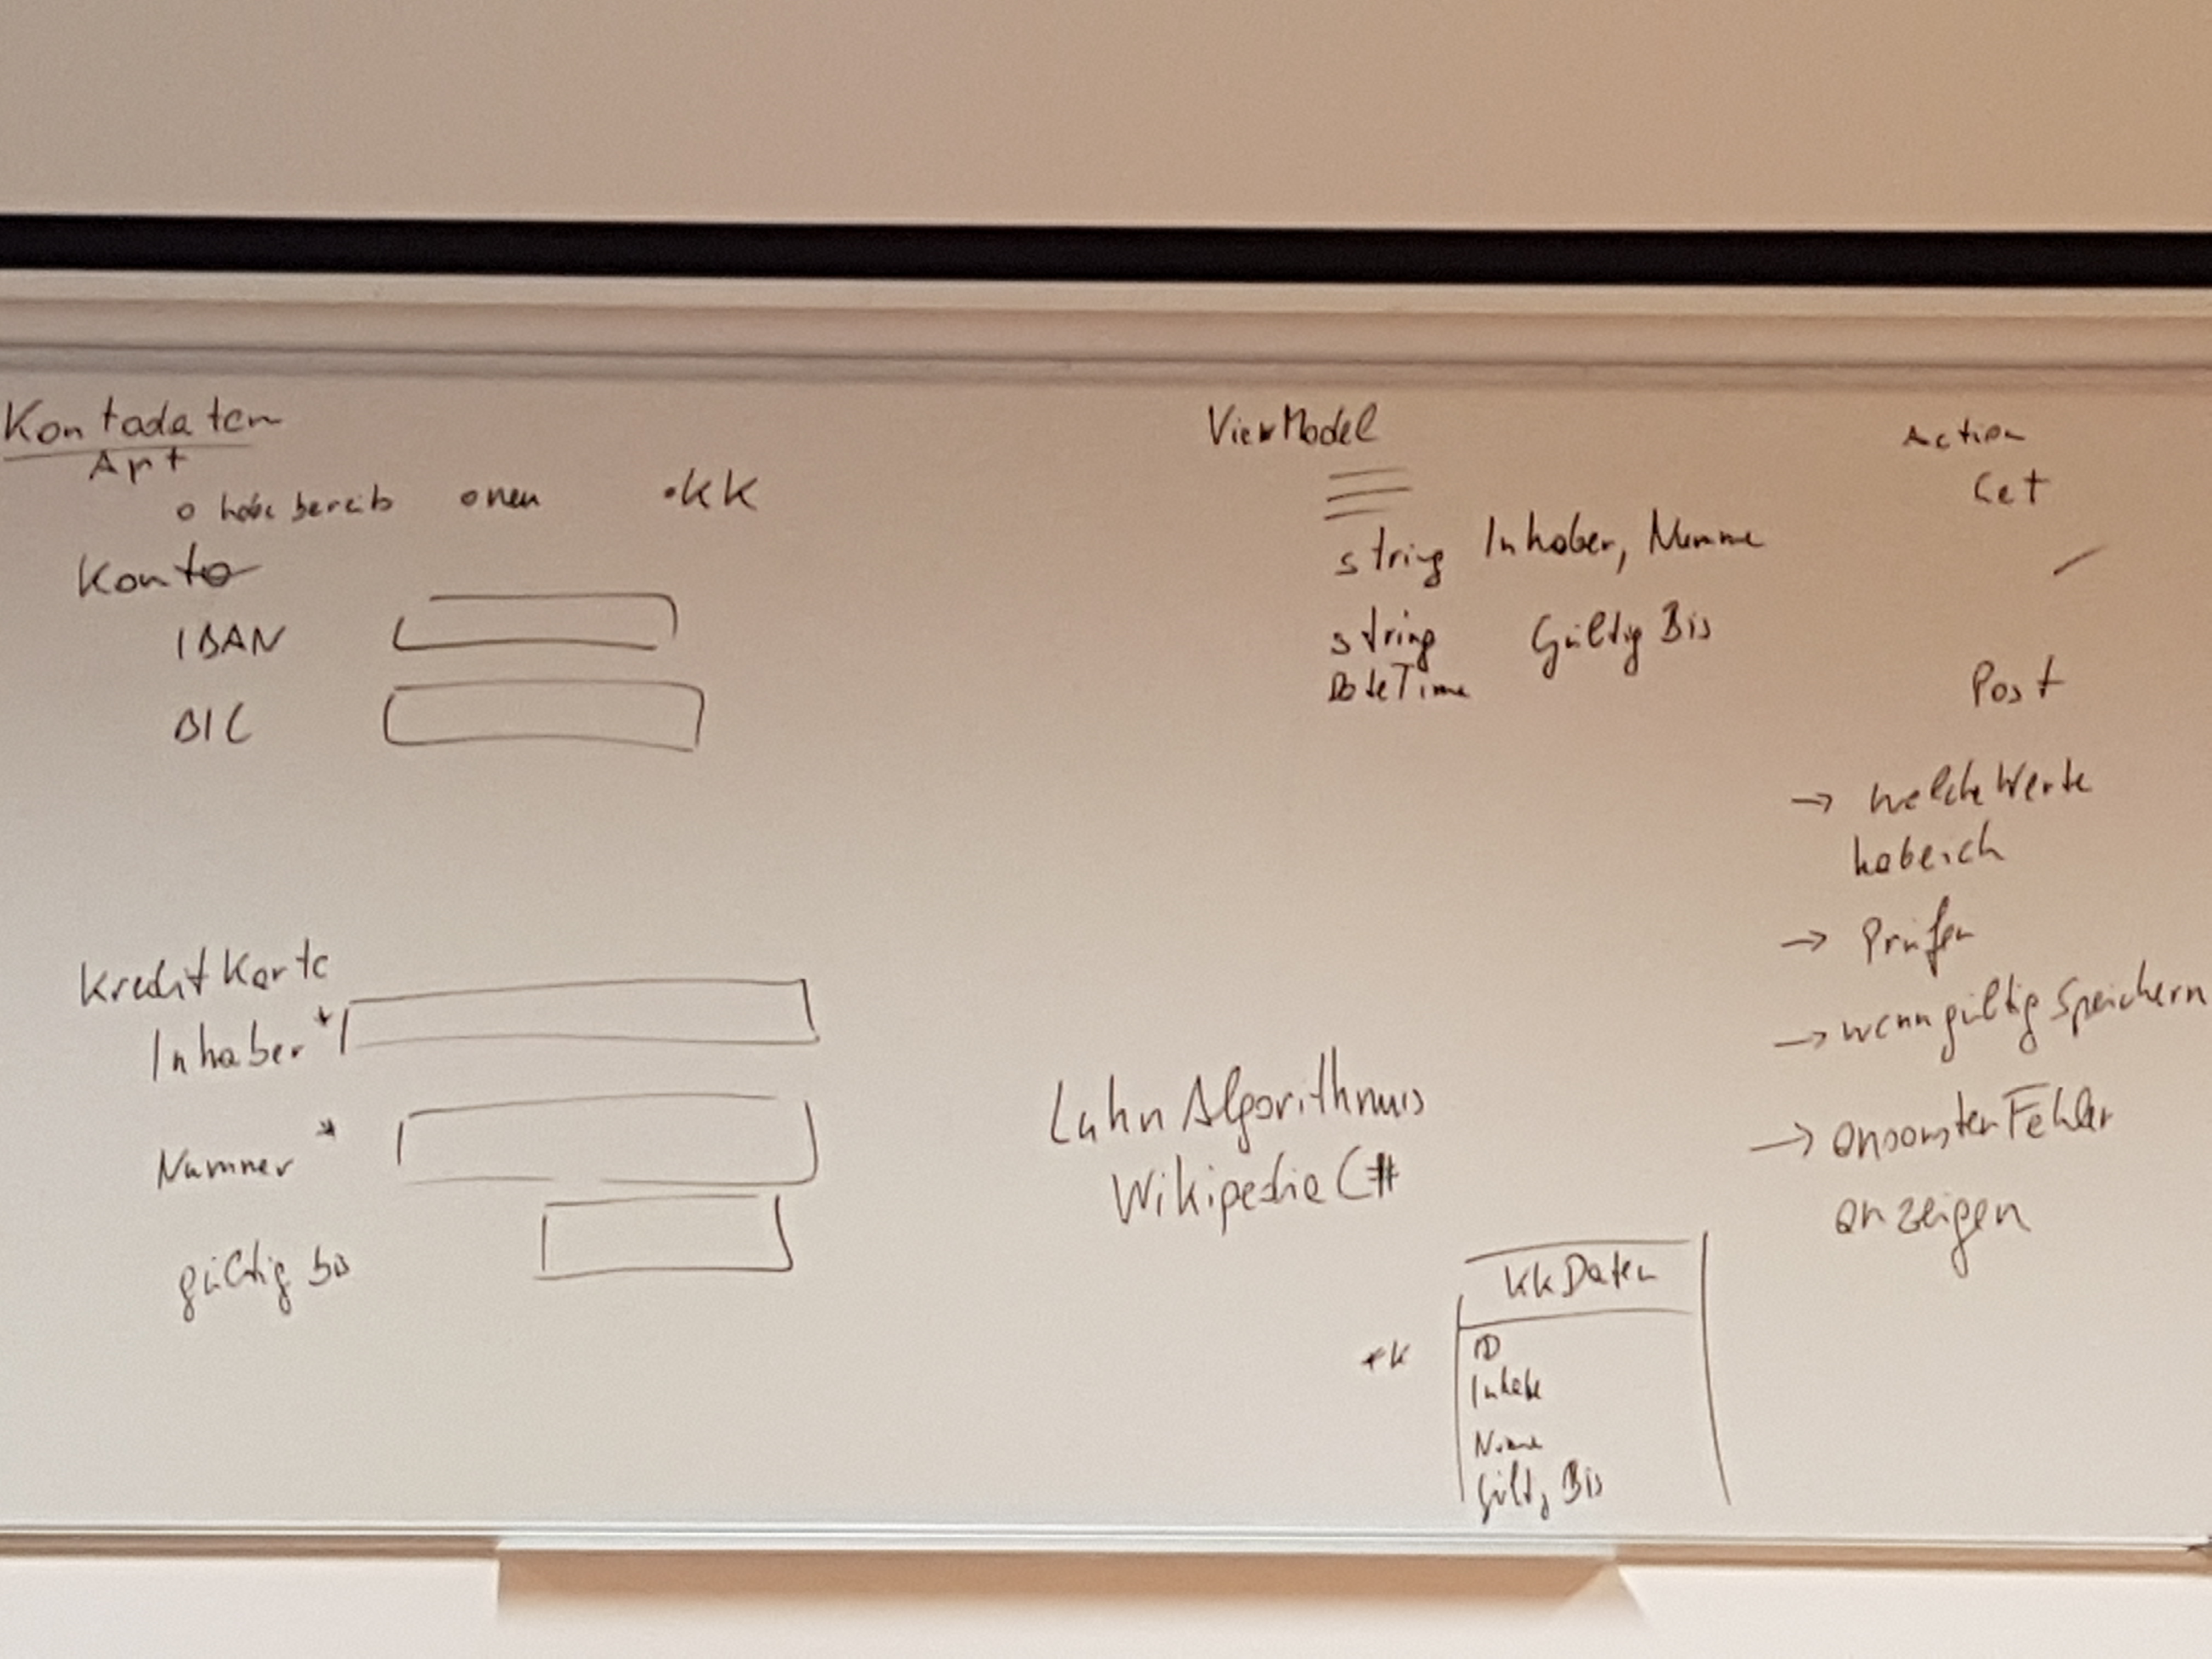 Kontodaten
Art
o habe bereits o neu •KK
Konto
IBAN
BIC
Kreditkarte
Inhaber *
Nummer *
gültig bis
ViewModel
string Inhaber, Nummer
string Gültig Bis
DateTime
Luhn Algorithmus
Wikipedia C#
KKDaten
ID
Inhaber
Gültig Bis
Action
Get
Post
→ welche Werte
habe ich
→ Prüfen
→ wenn gültig Speichern
→ ansonsten Fehler
anzeigen